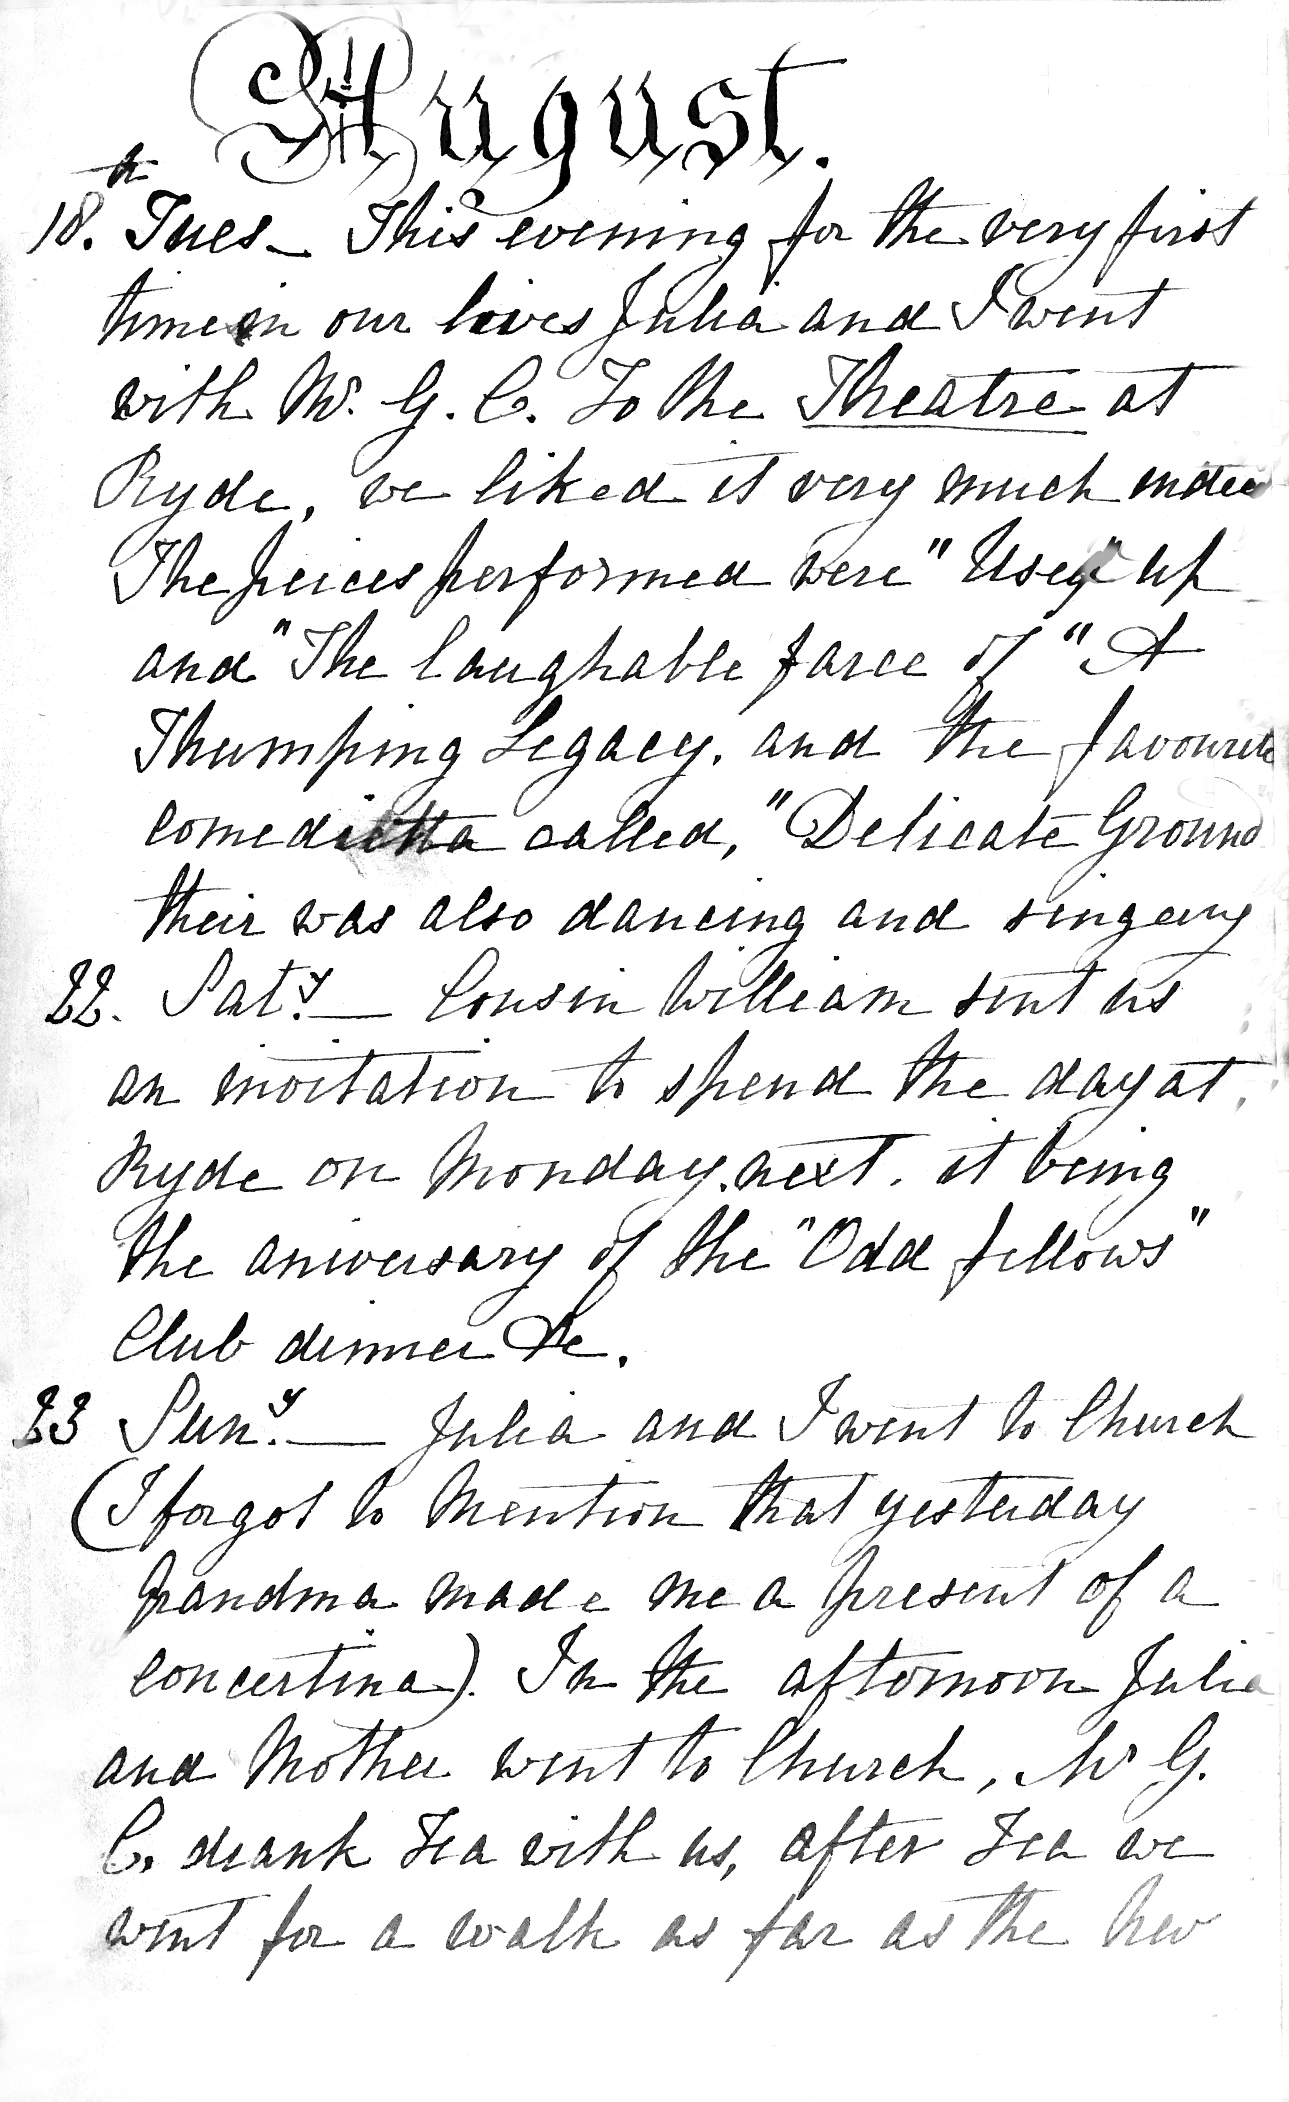 August.
18.th Tues– This evening for the very first
time in our lives Julia and I went
with Mr. G. C. To the Theatre at
Ryde, we liked it very much indeed
The peices performed were "Used" up
and "The laughable farce of "A
Thumping Legacy. and the favourite
comedietta called, "Delicate Ground
their was also dancing and singeing
22. Sat.y — Cousin William sent us
an invitation to spend the day at
Ryde on Monday next. it being
the aniversary of the "Odd fellows"
Club dinner &c.
23 Sun.y — Julia and I went to Church
(I forgot to Mention that yesterday
Grandma made me a present of a
concertina). In the afternoon Julia
and Mother went to Church, Mr G.
C. drank Tea with us, after Tea we
went for a walk as far as the New